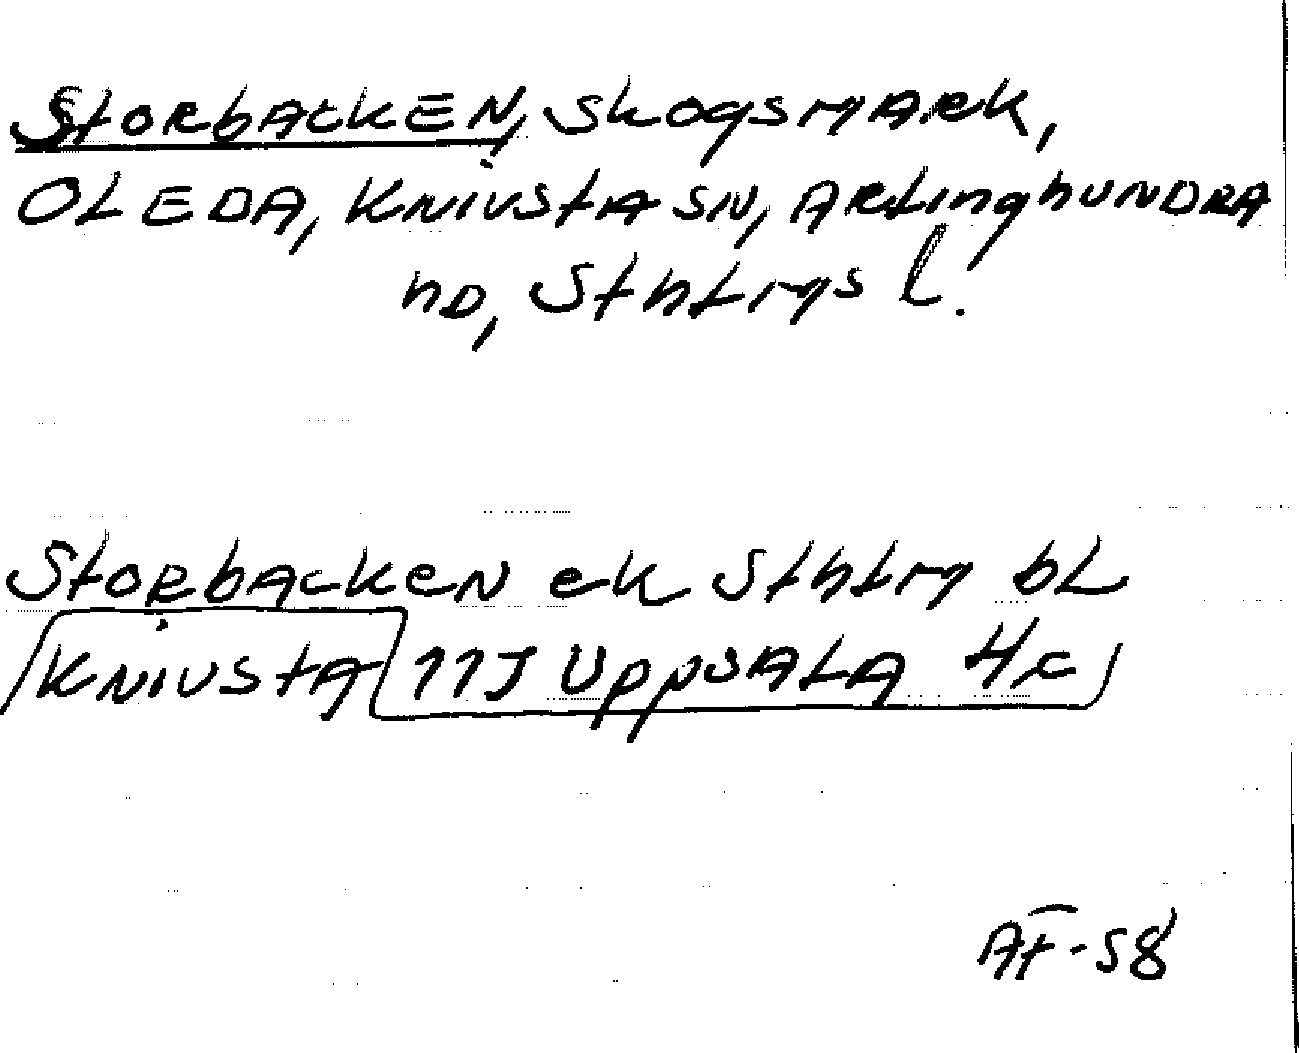 Storbacken, skogsmark,
Oleda, Knivsta sn, Ärlinghundra
hd, Sthlms l.
Storbacken ek Sthlm bl
Knivsta 11J Uppsala 4c
AF-58